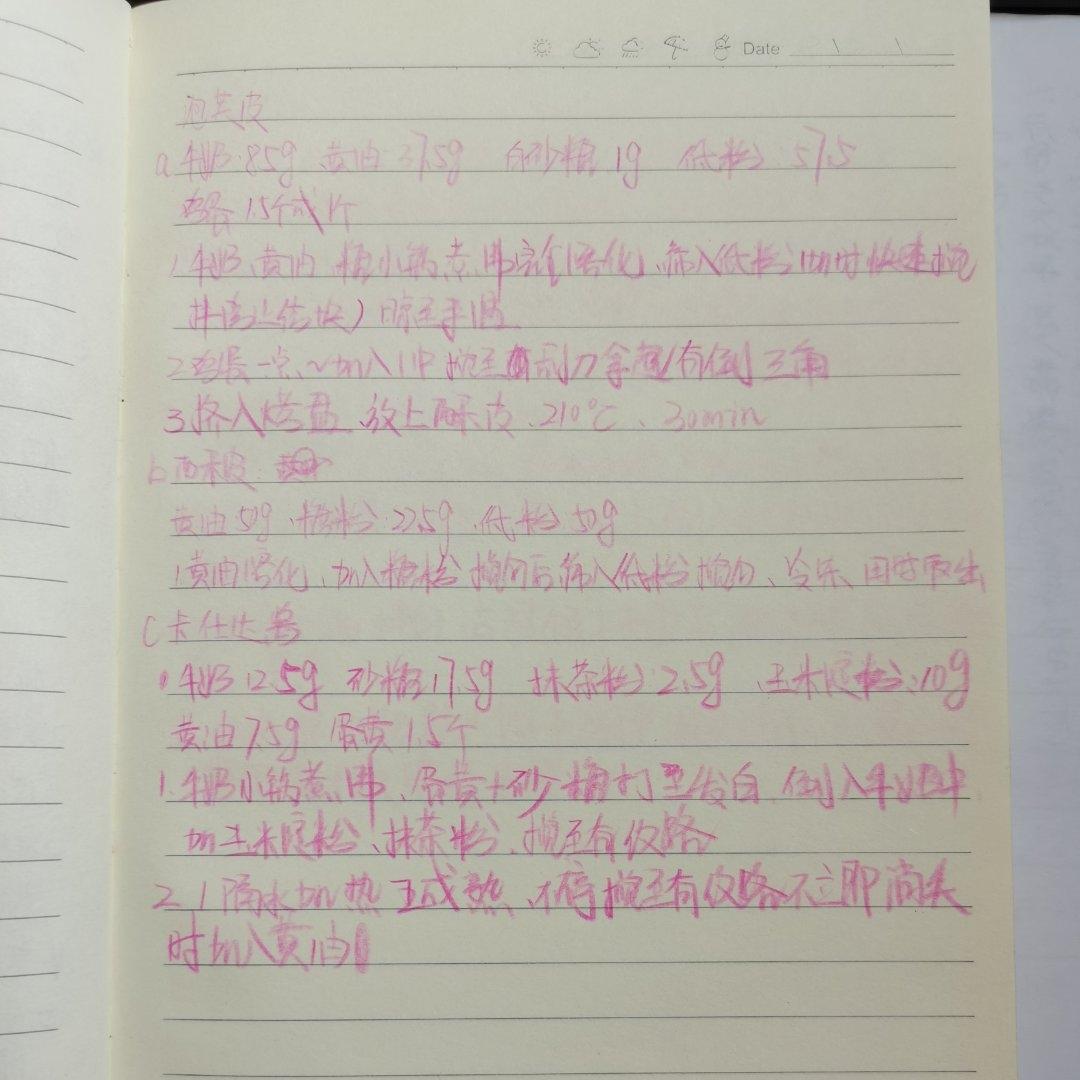 Date
泡芙皮
a 牛奶 85g 黄油 37.5g 白砂糖 1g 低粉 57.5
鸡蛋 1.5个或1个
1 牛奶、黄油、糖小锅煮沸完全溶化、筛入低粉 快速搅
拌防止结块）晾至手温
2 鸡蛋一点~加入1中 搅至刮刀拿起有倒三角
3.挤入烤盘、放上酥皮、210℃、30min
b 酥皮
黄油50g、糖粉22.5g、低粉50g
1黄油溶化、加入糖粉搅匀后筛入低粉搅匀、冷冻、用时取出
C 卡仕达酱
牛奶125g 砂糖17.5g 抹茶粉2.5g、玉米淀粉10g
黄油7.5g 蛋黄1.5个
1.牛奶小锅煮沸、蛋黄+砂糖打至发白、倒入牛奶中
加玉米淀粉、抹茶粉、搅至有纹路
2. 1隔水加热 成熟、不停搅至有纹路不立即消失
时加入黄油